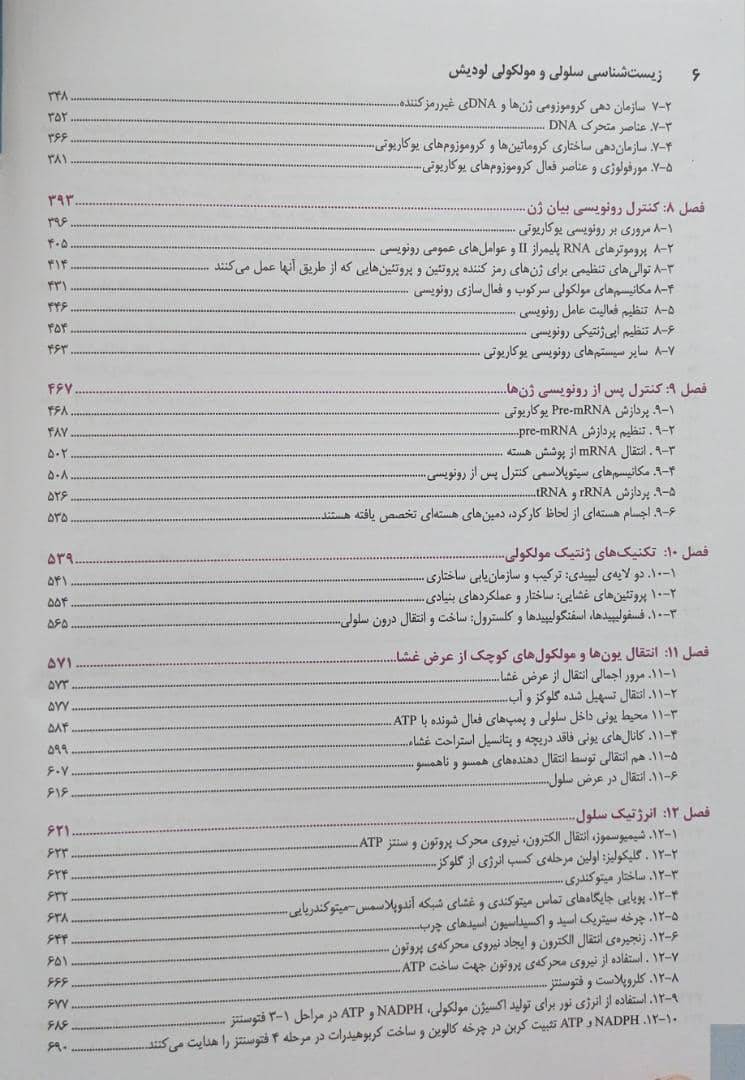 ۶ زیست‌شناسی سلولی و مولکولی لودیش
۷-۲ سازمان دهی کروموزومی ژن‌ها و DNAی غیررمزکننده ۳۴۸
۷-۳. عناصر متحرک DNA ۳۵۲
۷-۴. سازمان‌دهی ساختاری کروماتین‌ها و کروموزوم‌های یوکاریوتی ۳۶۶
۷-۵. مورفولوژی و عناصر فعال کروموزوم‌های یوکاریوتی ۳۸۱
فصل ۸: کنترل رونویسی بیان ژن ۳۹۳
۸-۱ مروری بر رونویسی یوکاریوتی ۳۹۶
۸-۲ پروموترهای RNA پلیمراز II و عوامل‌های عمومی رونویسی ۴۰۵
۸-۳ توالی‌های تنظیمی برای ژن‌های رمز کننده پروتئین و پروتئین‌هایی که از طریق آنها عمل می‌کنند ۴۱۴
۸-۴ مکانیسم‌های مولکولی سرکوب و فعال‌سازی رونویسی ۴۳۱
۸-۵ تنظیم فعالیت عامل رونویسی ۴۴۶
۸-۶. تنظیم اپی‌ژنتیکی رونویسی ۴۵۴
۸-۷ سایر سیستم‌های رونویسی یوکاریوتی ۴۶۳
فصل ۹: کنترل پس از رونویسی ژن‌ها ۴۶۷
۹-۱. پردازش Pre-mRNA یوکاریوتی ۴۶۸
۹-۲ . تنظیم پردازش pre-mRNA ۴۸۷
۹-۳ . انتقال mRNA از پوشش هسته ۵۰۲
۹-۴. مکانیسم‌های سیتوپلاسمی کنترل پس از رونویسی ۵۰۸
۹-۵. پردازش rRNA و tRNA ۵۲۶
۹-۶. اجسام هسته‌ای از لحاظ کارکرد، دمین‌های هسته‌ای تخصص یافته هستند ۵۳۵
فصل ۱۰: تکنیک‌های ژنتیک مولکولی ۵۳۹
۱۰-۱. دو لایه‌ی لیپیدی: ترکیب و سازمان‌یابی ساختاری ۵۴۱
۱۰-۲ پروتئین‌های غشایی: ساختار و عملکردهای بنیادی ۵۵۴
۱۰-۳. فسفولیپیدها، اسفنگولیپیدها و کلسترول: ساخت و انتقال درون سلولی ۵۶۵
فصل ۱۱: انتقال یون‌ها و مولکول‌های کوچک از عرض غشا ۵۷۱
۱۱-۱. مرور اجمالی انتقال از عرض غشا ۵۷۳
۱۱-۲. انتقال تسهیل شده گلوکز و آب ۵۷۷
۱۱-۳ محیط یونی داخل سلولی و پمپ‌های فعال شونده با ATP ۵۸۴
۱۱-۴. کانال‌های یونی فاقد دریچه و پتانسیل استراحت غشاء ۵۹۹
۱۱-۵. هم انتقالی توسط انتقال دهنده‌های همسو و ناهمسو ۶۰۷
۱۱-۶. انتقال در عرض سلول ۶۱۶
فصل ۱۲: انرژتیک سلول ۶۲۱
۱۲-۱. شیمیوسموز، انتقال الکترون، نیروی محرک پروتون و سنتز ATP ۶۲۳
۱۲-۲ . گلیکولیز: اولین مرحله‌ی کسب انرژی از گلوکز ۶۲۴
۱۲-۳. ساختار میتوکندری ۶۳۲
۱۲-۴. پویایی جایگاه‌های تماس میتوکندی و غشای شبکه آندوپلاسمس-میتوکندریایی ۶۳۸
۱۲-۵. چرخه سیتریک اسید و اکسیداسیون اسیدهای چرب ۶۴۴
۱۲-۶. زنجیره‌ی انتقال الکترون و ایجاد نیروی محرکه‌ی پروتون ۶۵۱
۱۲-۷ . استفاده از نیروی محرکه‌ی پروتون جهت ساخت ATP ۶۶۶
۱۲-۸. کلروپلاست و فتوسنتز ۶۷۷
۱۲-۹. استفاده از انرژی نور برای تولید اکسیژن مولکولی، NADPH و ATP در مراحل ۱-۳ فتوسنتز ۶۸۶
۱۲-۱۰. NADPH و ATP تثبیت کربن در چرخه کالوین و ساخت کربوهیدرات در مرحله ۴ فتوسنتز را هدایت می‌کنند ۶۹۰